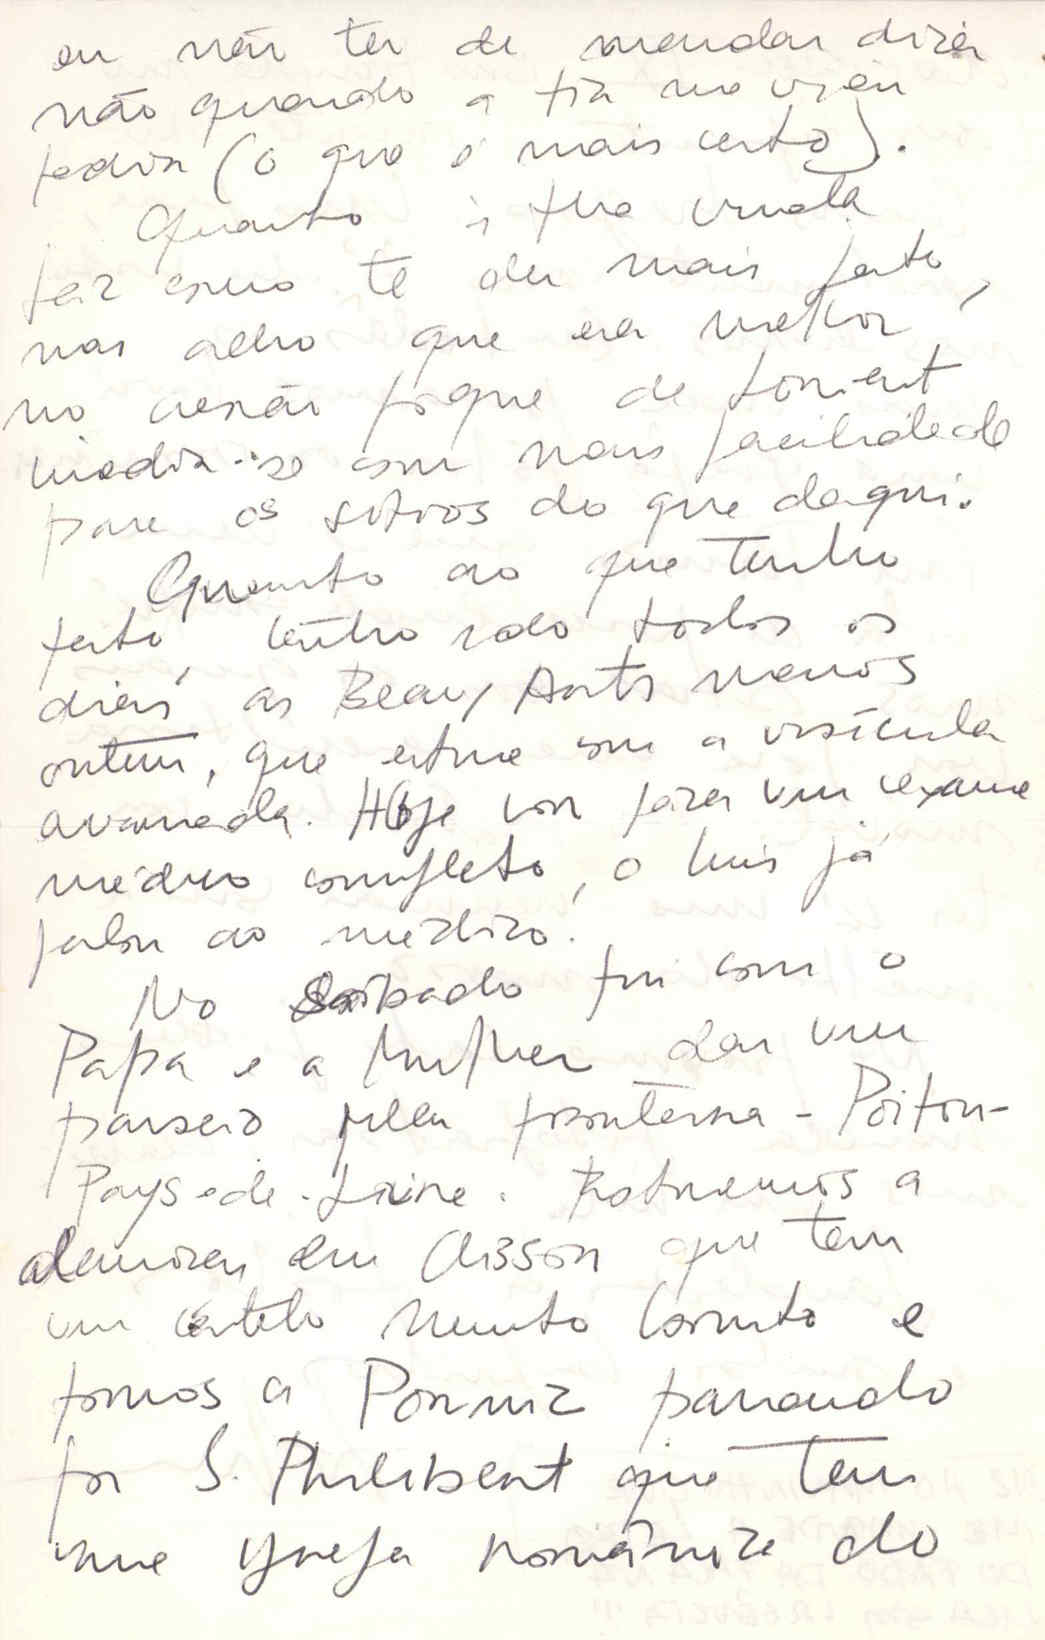 eu não ter de mandar dizer
não quando a tia me vier
pedir (o que é mais certo).
Quanto à tua vinda
faz como te der mais jeito,
mas acho que era melhor
no verão porque de Lorient
-se com mais facilidade
para os sítios do que daqui.
Quanto ao que tenho
feito, tenho ido todos os
dias às Beaux Arts menos
ontem, que estive com a vesícula
avariada. Hoje vou fazer um exame
médico completo, o Luis já
falou ao médico.
No Sábado fui com o
Papa e a Mulher dar um
passeio pela fronteira - Poitou-
Pays-de-Loire. a
em Clisson que tem
um castelo muito bonito e
fomos a Pornic parando
por S. Philibert que tem
uma igreja românica do